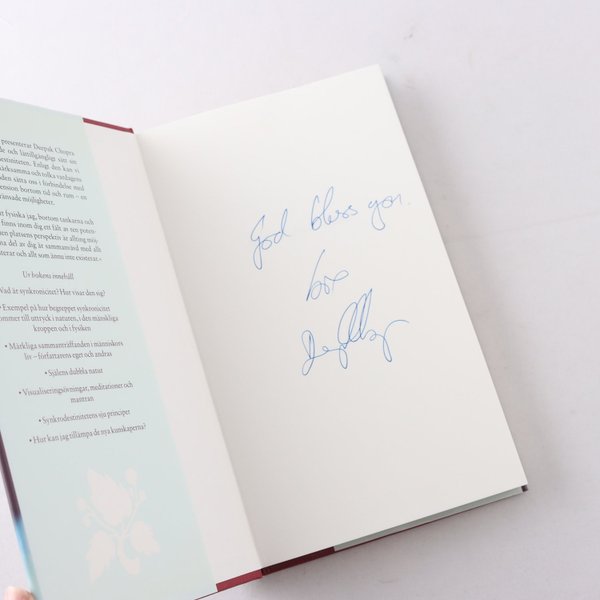 presenterar Deepak Chopra
de och lättillgängligt sätt sin
destiniteten. Enligt den kan vi
märksamma och tolka vardagens
den sätta oss i förbindelse med
ension bortom tid och rum – en
ränsade möjligheter.
t fysiska jag, bortom tankarna och
finns inom dig ett fält av ren poten-
en platsens perspektiv är allting möj-
na del av dig är sammanvävd med allt
sterar och allt som ännu inte existerar.»
Ur bokens innehåll
Vad är synkronicitet? Hur visar den sig?
• Exempel på hur begreppet synkronicitet
ommer till uttryck i naturen, i den mänskliga
kroppen och i fysiken
• Märkliga sammanträffanden i människors
liv – författarens eget och andras
• Själens dubbla natur
• Visualiseringsövningar, meditationer och
mantran
• Synkrodestinitetens sju principer
• Hur kan jag tillämpa de nya kunskaperna?
God bless you.
love